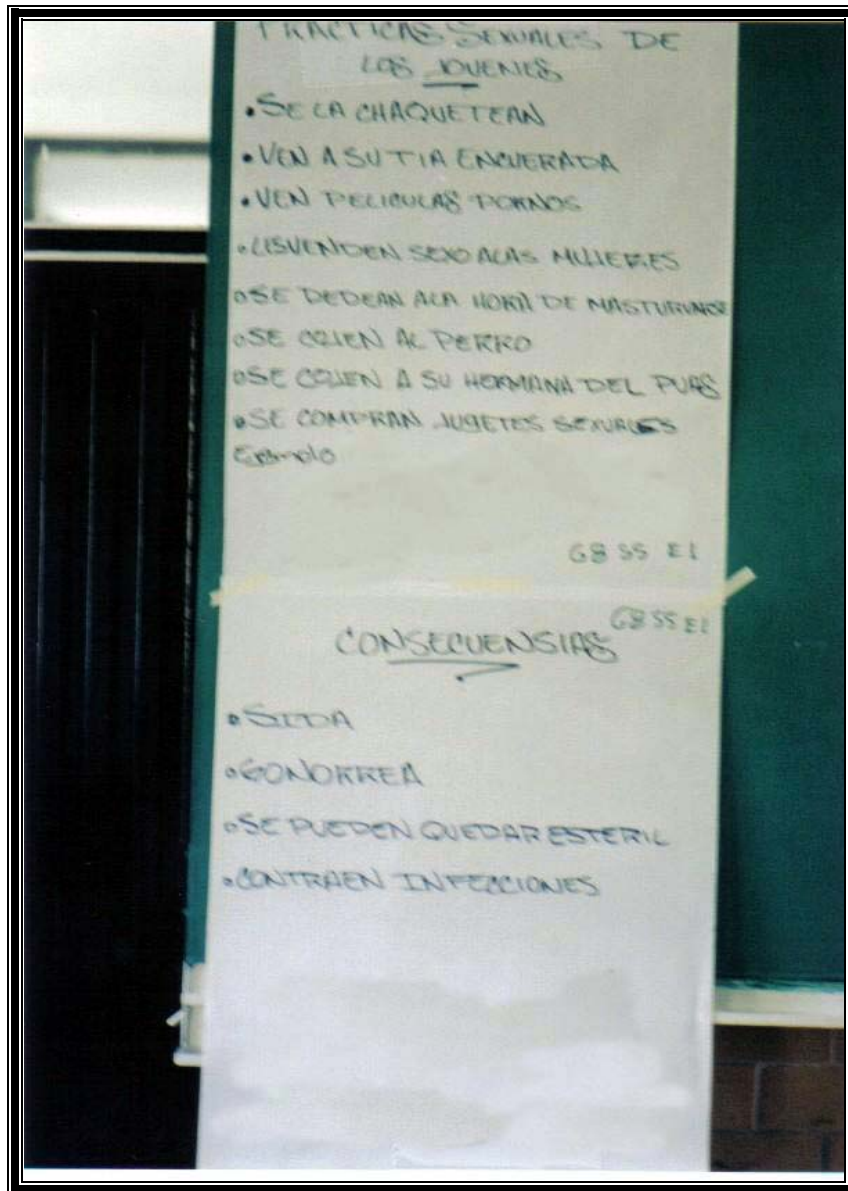 PRACTICAS SEXUALES DE
LOS JOVENES
• SE LA CHAQUETEAN
• VEN A SU TIA ENCUERADA
• VEN PELICULAS PORNOS
• LES VENDEN SEXO ALAS MUJERES
• SE DEDEAN ALA HORA DE
• SE COJEN AL PERRO
• SE COJEN A SU HERMANA DEL
• SE COMPRAN JUGETES SEXUALES
Ejemplo
G8 S5 E1
G8 S5 E1
CONSECUENSIAS
• SIDA
• GONORREA
• SE PUEDEN QUEDAR ESTERIL
• CONTRAEN INFECCIONES